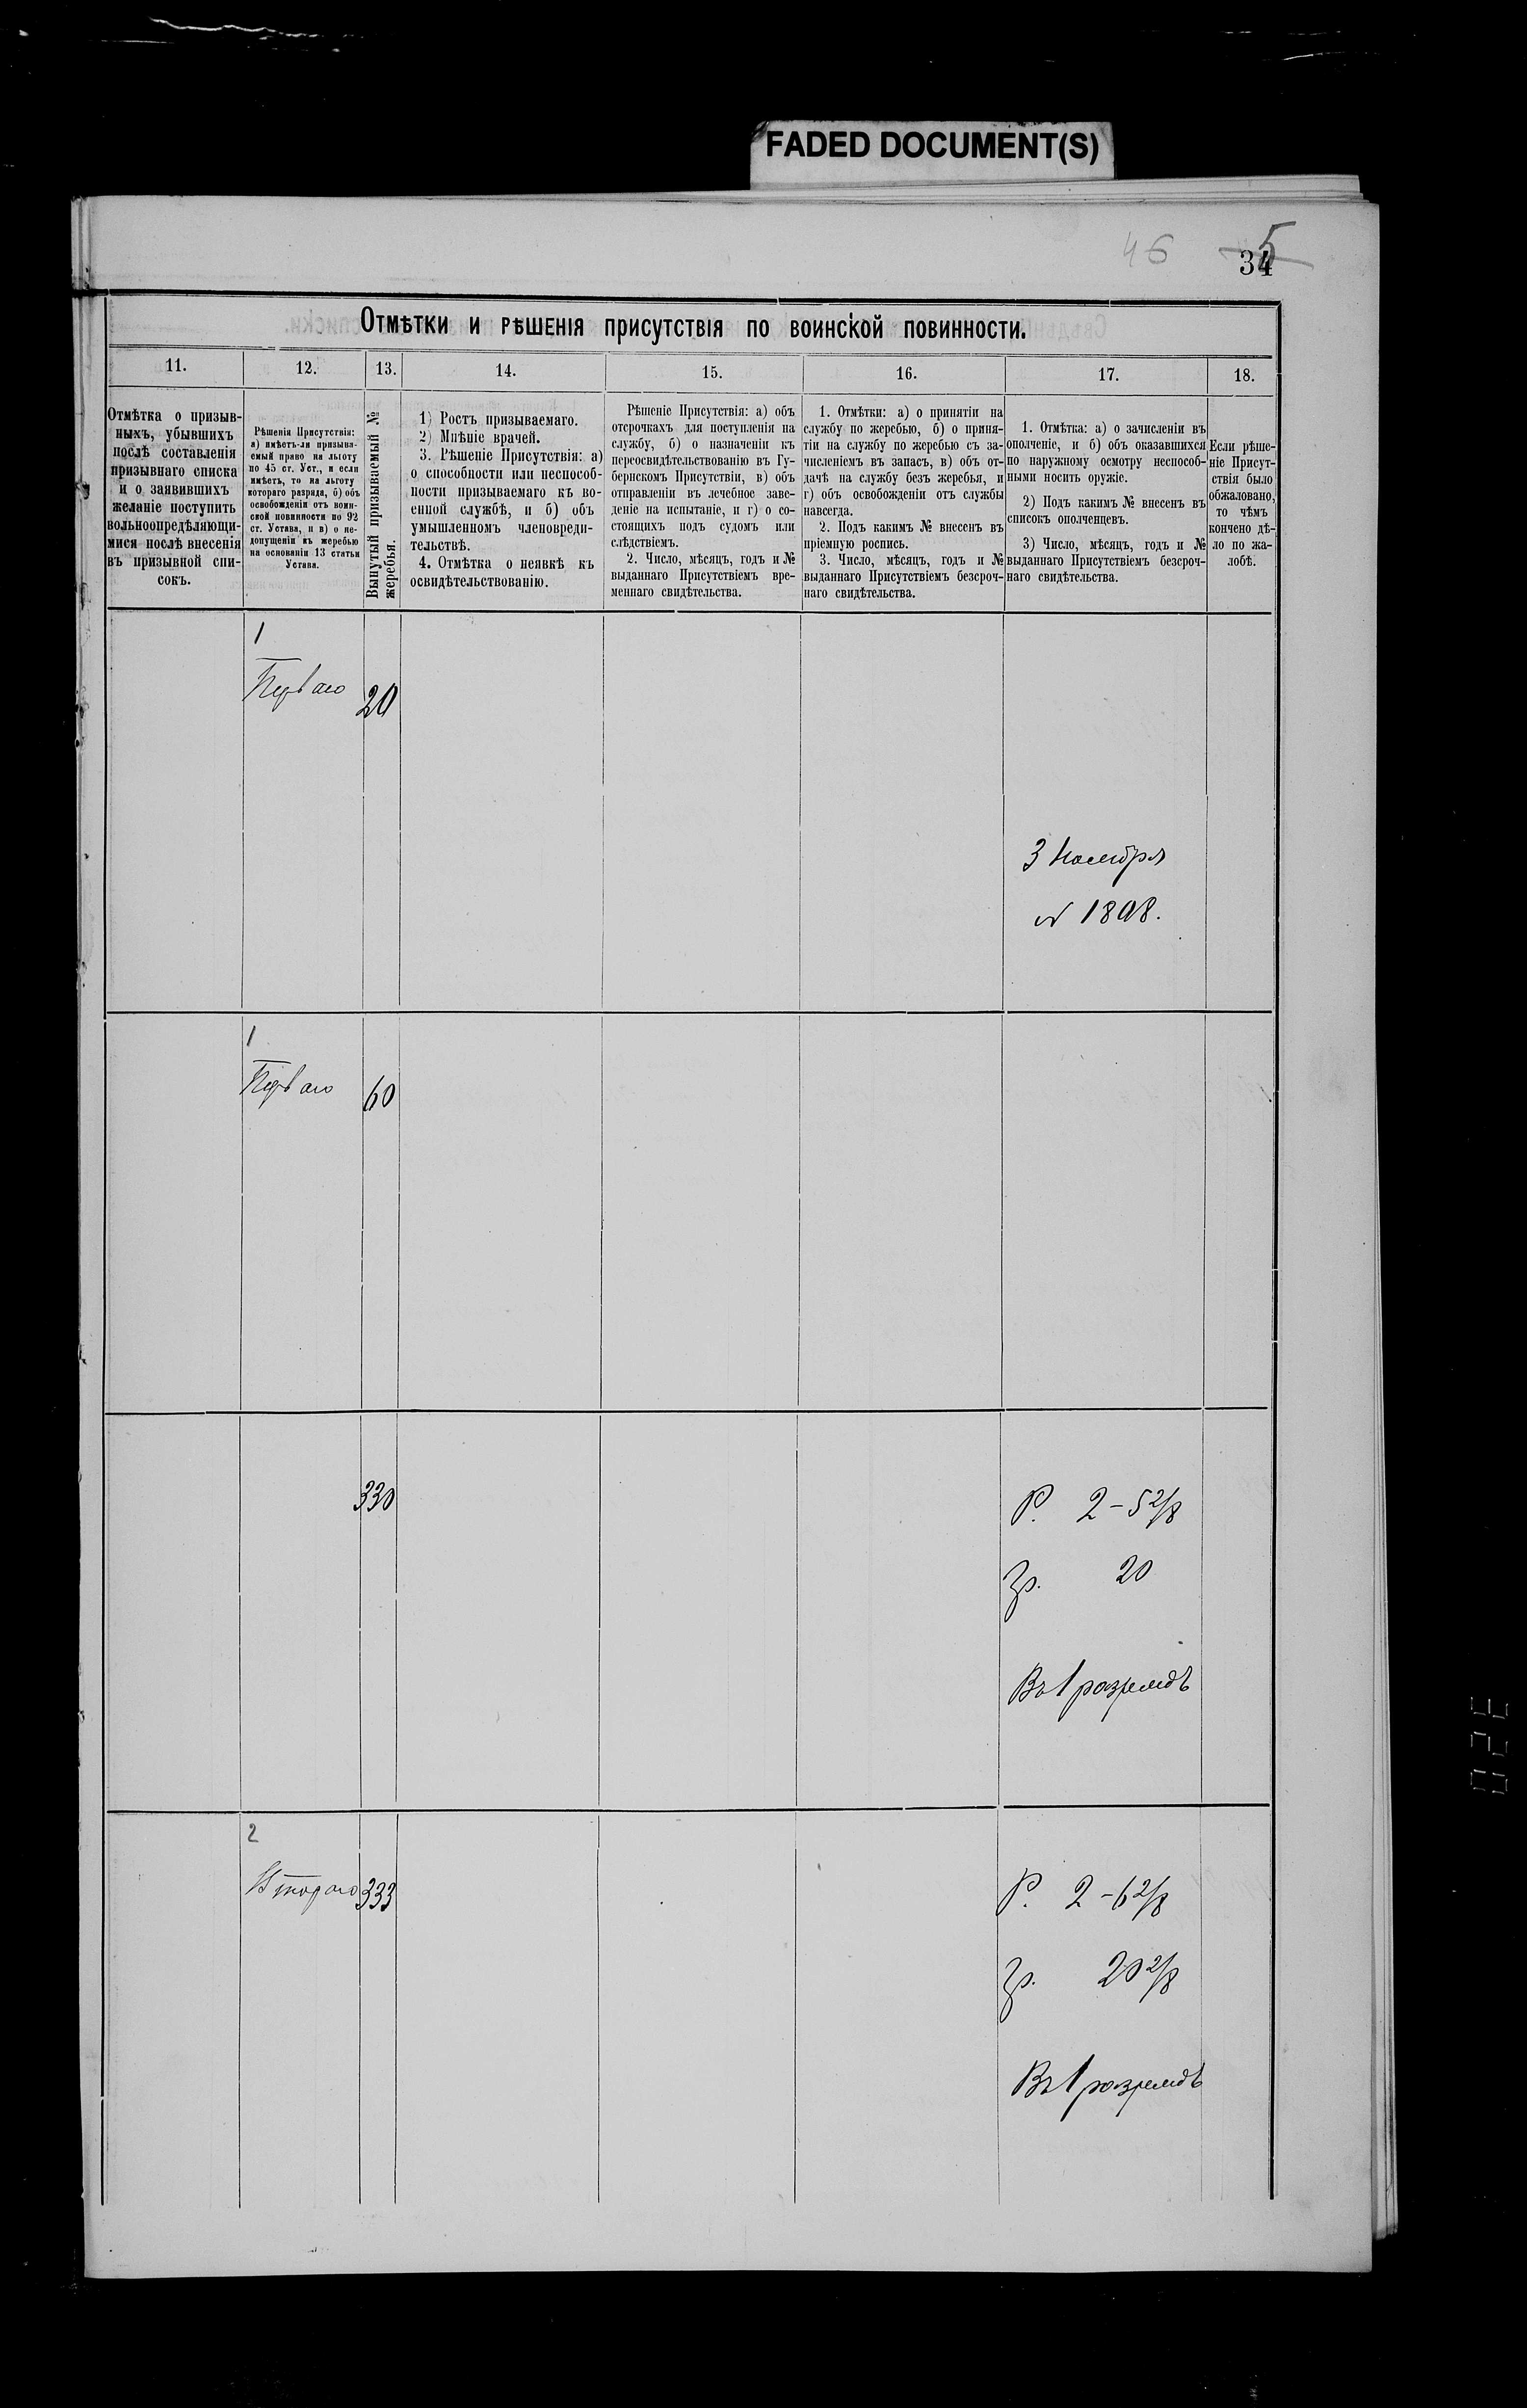 FADED DOCUMENT(S)
46 5
34
Отмѣтки и рѣшенія присутствія по воинской повинности.
11.
12.
13.
14.
15.
16.
17.
18.
Отмѣтка о призыв-
ныхъ, убывшихъ
послѣ составленія
призывнаго списка
и о заявившихъ
желаніе поступить
вольноопредѣляющи-
мися послѣ внесенія
въ призывной спи-
сокъ.
Рѣшенія Присутствія:
а) имѣетъ-ли призыва-
емый право на льготу
по 45 ст. Уст., и если
имѣетъ, то на льготу
котораго разряда, б) объ
освобожденіи отъ воин-
ской повинности по 92
ст. Устава, и в) о не-
допущеніи къ жеребью
на основаніи 13 статьи
Устава.
Вынутый призываемый №
жеребья.
1) Ростъ призываемаго.
2) Мнѣніе врачей.
3. Рѣшеніе Присутствія: а)
о способности или неспособ-
ности призываемаго къ во-
енной службѣ, и б) объ
умышленномъ членовреди-
тельствѣ.
4. Отмѣтка о неявкѣ къ
освидѣтельствованію.
Рѣшеніе Присутствія: а) объ
отсрочкахъ для поступленія на
службу, б) о назначеніи къ
переосвидѣтельствованію въ Гу-
бернскомъ Присутствіи, в) объ
отправленіи въ лечебное заве-
деніе на испытаніе, и г) о со-
стоящихъ подъ судомъ или
слѣдствіемъ.
2. Число, мѣсяцъ, годъ и №
выданнаго Присутствіемъ вре-
меннаго свидѣтельства.
1. Отмѣтки: а) о принятіи на
службу по жеребью, б) о приня-
тіи на службу по жеребью съ за-
численіемъ въ запасъ, в) объ от-
дачѣ на службу безъ жеребья, и
г) объ освобожденіи отъ службы
навсегда.
2. Подъ какимъ № внесенъ въ
пріемную роспись.
3. Число, мѣсяцъ, годъ и №
выданнаго Присутствіемъ безсроч-
наго свидѣтельства.
1. Отмѣтка: а) о зачисленіи въ
ополченіе, и б) объ оказавшихся
по наружному осмотру неспособ-
ными носить оружіе.
2) Подъ какимъ № внесенъ въ
списокъ ополченцевъ.
3) Число, мѣсяцъ, годъ и №
выданнаго Присутствіемъ безсроч-
наго свидѣтельства.
Если рѣше-
ніе Присут-
ствія было
обжаловано,
то чѣмъ
кончено дѣ-
ло по жа-
лобѣ.
1
Перваго
20
3 Ноября
N 1898.
1
Перваго
60
330
Р. 2-5 2/8
гр. 20
Въ 1 разрядъ
2
Втораго
333
Р. 2-6 2/8
гр. 20 2/8
Въ 1 разрядъ
320